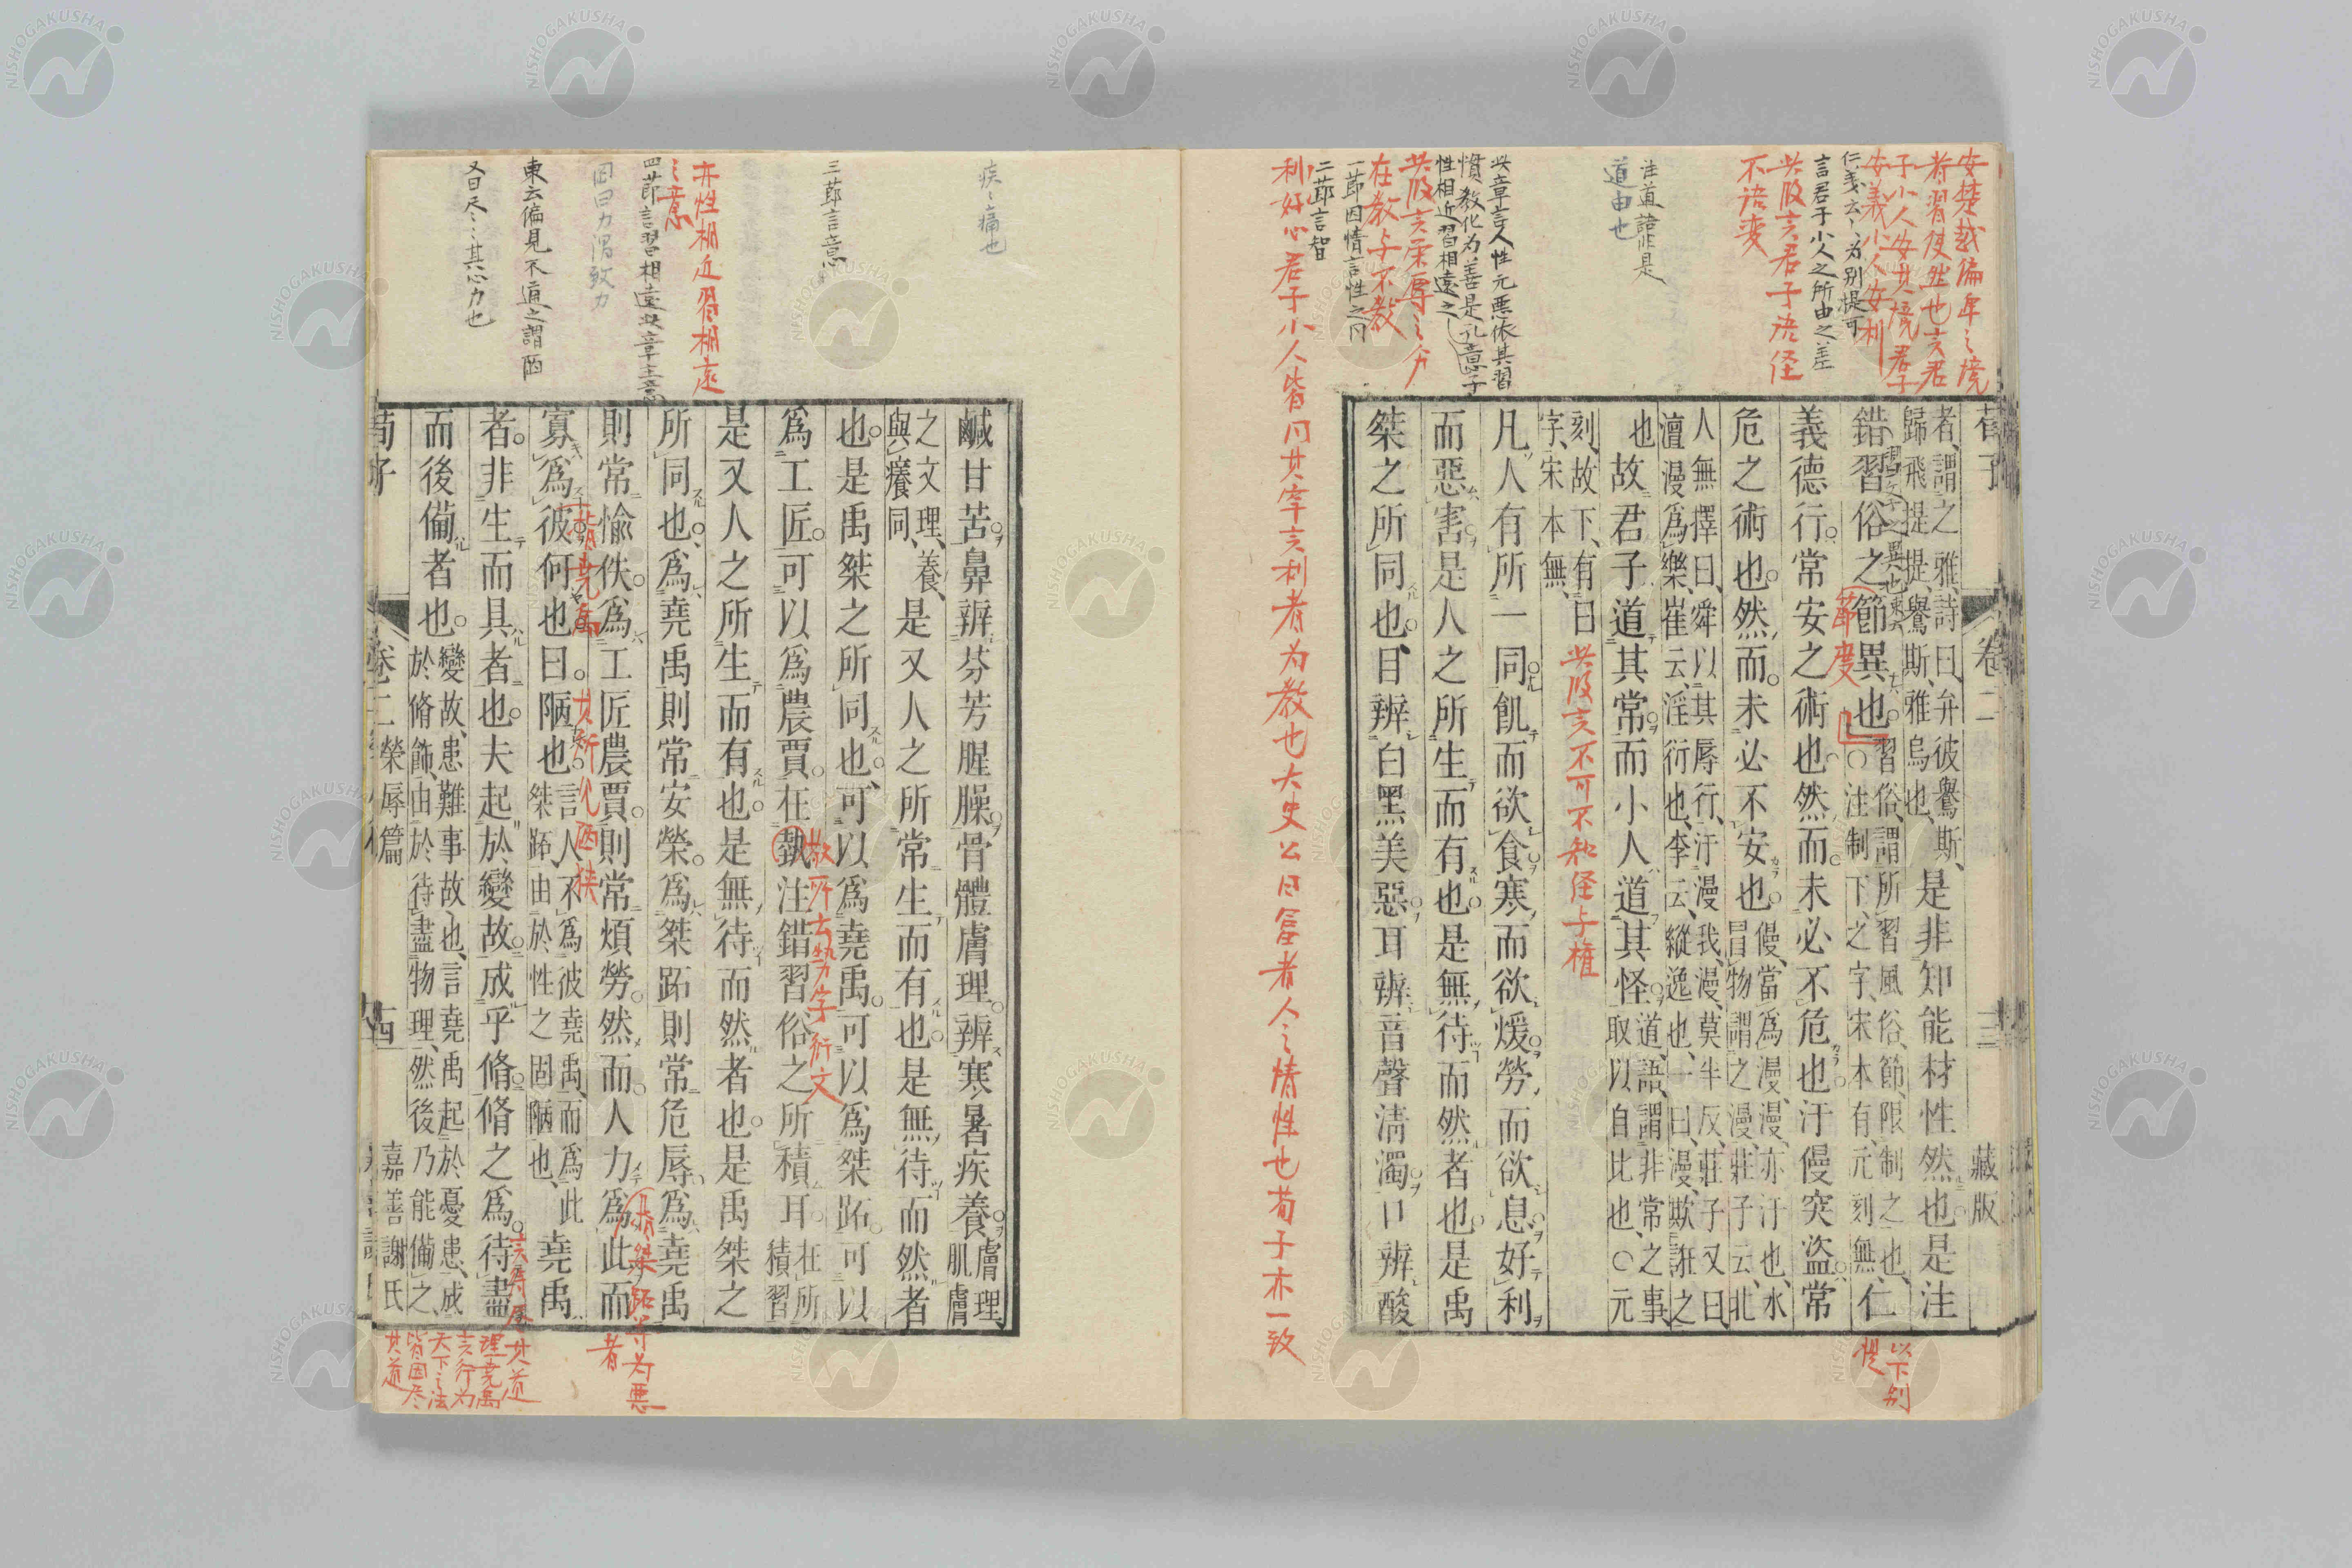 安楚越偏年之境
者習使然也言君
子小人安其境君子
安義小人安利
仁義云〻為別提可
言君子小人之所由之差
此段言君子語径
不語変
注道語非是
道由也
此章言人性元悪依其習
慣教化为善是孔意子
性相近習相遠之
此段言栄辱之分
在教与不教
一莭因情言性之同
二莭言智
利好心君子小人皆同其宰言利者为教也大史公曰富者人之情性也荀子亦一致
荀子
卷二
十三
藏版
者、謂之雅、詩曰、弁彼鸒斯、
歸飛提提、鸒斯、雅烏也、
是非知能材性然也是注
錯習俗之節異也
習俗、謂所習風俗、節、限制之也、
〇注制下、之字、宋本有、元刻無、
仁
義德行常安之術也然而未必不危也汙僈突盜常
危之術也然而未必不安也
僈當為漫、漫、亦汙也、水
冒物謂之漫、莊子云、北
人無擇曰、舜以其辱行、汙漫我、漫、莫半反、莊子又曰
澶漫為樂、崔云、淫衍也、李云、縱逸也、一曰、漫、欺誑之
也
故君子道其常而小人道其怪
道、語、謂非常之事
取以自比也、〇元
刻、故下、有曰
字、宋本無、
莭度
此段言不可不知径与權
以下別
提
凡人有所一同飢而欲食寒而欲煖勞而欲息好利
而惡害是人之所生而有也是無待而然者也是禹
桀之所同也、目辨白黑美惡耳辨音聲淸濁口辨酸
疾〻痛也
三莭言意
亦性相近習相遠
之意
四莭言習相遠此章主意
固曰力謂致力
東云偏見不通之謂陋
又曰尽〻其心力也
鹹甘苦鼻辨芬芳腥臊骨體膚理辨寒暑疾養
膚理
肌膚
之文理、養、
與癢同、
是又人之所常生而有也是無待而然者
也是禹桀之所同也、可以為堯禹可以為桀跖可以
為工匠可以為農賈在埶注錯習俗之所積耳
在所
積習
是又人之所生而有也是無待而然者也是禹桀之
所同也、為堯禹則常安榮為桀跖則常危辱為堯禹
則常愉佚為工匠農賈則常煩勞然而人力為此而
寡為彼何也曰陋也
言人不為彼堯禹、而為此
桀跖、由於性之固陋也、
堯禹
者非生而具者也夫起於變故成乎脩脩之為待盡
而後備者也
變故、患難事故也、言堯禹起於憂患、成
於脩飾、由於待盡物理、然後乃能備之、
荀子
卷二榮辱篇
十四
嘉善謝氏
其道
皆因尽
天下之法
言行为
理堯禹